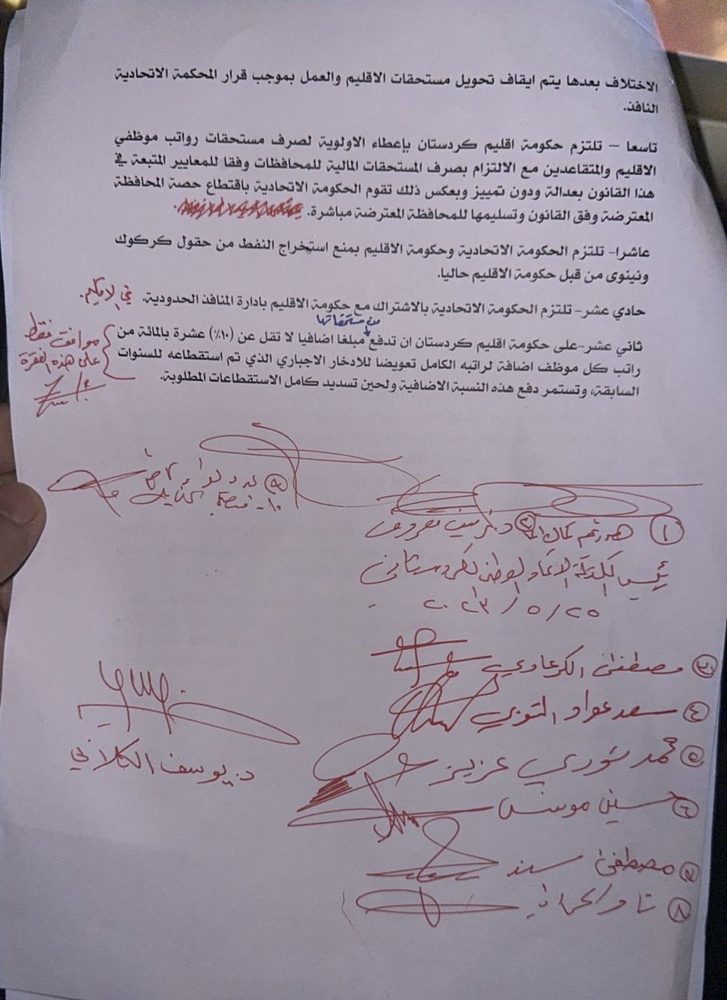 الاختلاف بعدها يتم ايقاف تحويل مستحقات الاقليم والعمل بموجب قرار المحكمة الاتحادية
النافذ.
تاسعا – تلتزم حكومة اقليم كردستان بإعطاء الاولوية لصرف مستحقات رواتب موظفي
الاقليم والمتقاعدين مع الالتزام بصرف المستحقات المالية للمحافظات وفقا للمعايير المتبعة في
هذا القانون بعدالة ودون تمييز وبعكس ذلك تقوم الحكومة الاتحادية باقتطاع حصة المحافظة
المعترضة وفق القانون وتسليمها للمحافظة المعترضة مباشرة.
عاشرا- تلتزم الحكومة الاتحادية وحكومة الاقليم بمنع استخراج النفط من حقول كركوك
ونينوى من قبل حكومة الاقليم حاليا.
حادي عشر- تلتزم الحكومة الاتحادية بالاشتراك مع حكومة الاقليم بادارة المنافذ الحدودية. في الاقليم.
من مستحقاتها
ثاني عشر-على حكومة اقليم كردستان ان تدفع مبلغا اضافيا لا تقل عن (١٠٪) عشرة بالمائة من
راتب كل موظف اضافة لراتبه الكامل تعويضا للادخار الاجباري الذي تم استقطاعه للسنوات
السابقة، وتستمر دفع هذه النسبة الاضافية ولحين تسديد كامل الاستقطاعات المطلوبة.
موافق فقط
على هذه الفقرة
١
رئيس كتلة الاتحاد الوطني الكردستاني
٢٠٢٣/٥/٢٥
٣ مصطفى الكرعاوي
٤ سعد عواد التوبي
٥ محمد نوري عزيز
٦ حسين مونس
٧ مصطفى سند
٨
٩
١٠-
د. يوسف الكلابي